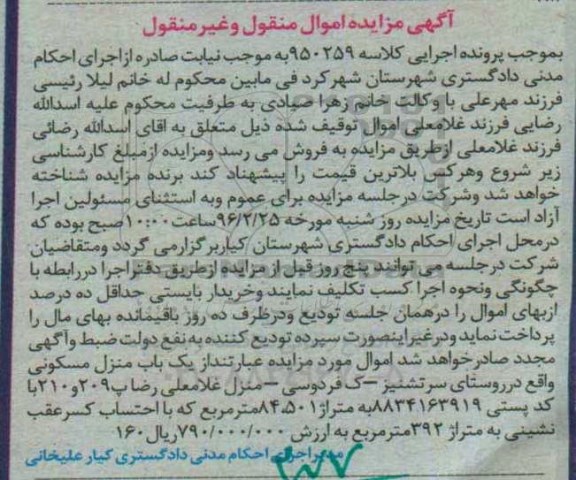 آگهی مزایده اموال منقول و غیر منقول
بموجب پرونده اجرایی کلاسه ۹۵۰۲۵۹به موجب نیابت صادره از اجرای احکام
مدنی دادگستری شهرستان شهرکرد فی مابین محکوم له خانم لیلا رئیسی
فرزند مهرعلی با وکالت خانم زهرا صیادی به طرفیت محکوم علیه اسدالله
رضایی فرزند غلامعلی اموال توقیف شده ذیل متعلق به اقای اسدالله رضائی
فرزند غلامعلی ازطریق مزایده به فروش می رسد ومزایده ازمبلغ کارشناسی
زیر شروع وهرکس بلاترین قیمت را پیشنهاد کند برنده مزایده شناخته
خواهد شد وشرکت درجلسه مزایده برای عموم وبه استثنای مسئولین اجرا
آزاد است تاریخ مزایده روز شنبه مورخه ۹۶/۲/۲۵ساعت۱۰:۰۰صبح بوده که
درمحل اجرای احکام دادگستری شهرستان کیاربرگزارمی گردد ومتقاضیان
شرکت درجلسه می توانند پنج روز قبل از مزایده ازطریق دفتراجرا دررابطه با
چگونگی ونحوه اجرا کسب تکلیف نمایند وخریدار بایستی حداقل ده درصد
ازبهای اموال را درهمان جلسه تودیع ودرظرف ده روز باقیمانده بهای مال را
پرداخت نماید ودرغیراینصورت سپرده تودیع کننده به نفع دولت ضبط وآگهی
مجدد صادرخواهد شد اموال مورد مزایده عبارتنداز یک باب منزل مسکونی
واقع درروستای سرتشنیز –گ فردوسی –منزل غلامعلی رضا پ۲۰۹و۲۱۰با
کد پستی ۸۸۳۴۱۶۳۹۱۹به متراژ۸۴،۵۰۱مترمربع که با احتساب کسرعقب
نشینی به متراژ ۳۹۲مترمربع به ارزش ۷۹۰/۰۰۰/۰۰۰ریال ۱۶۰
مدیراجرای احکام مدنی دادگستری کیار علیخانی